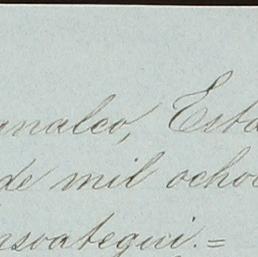 analco, Esta
de mil ocho
nsoategui.=